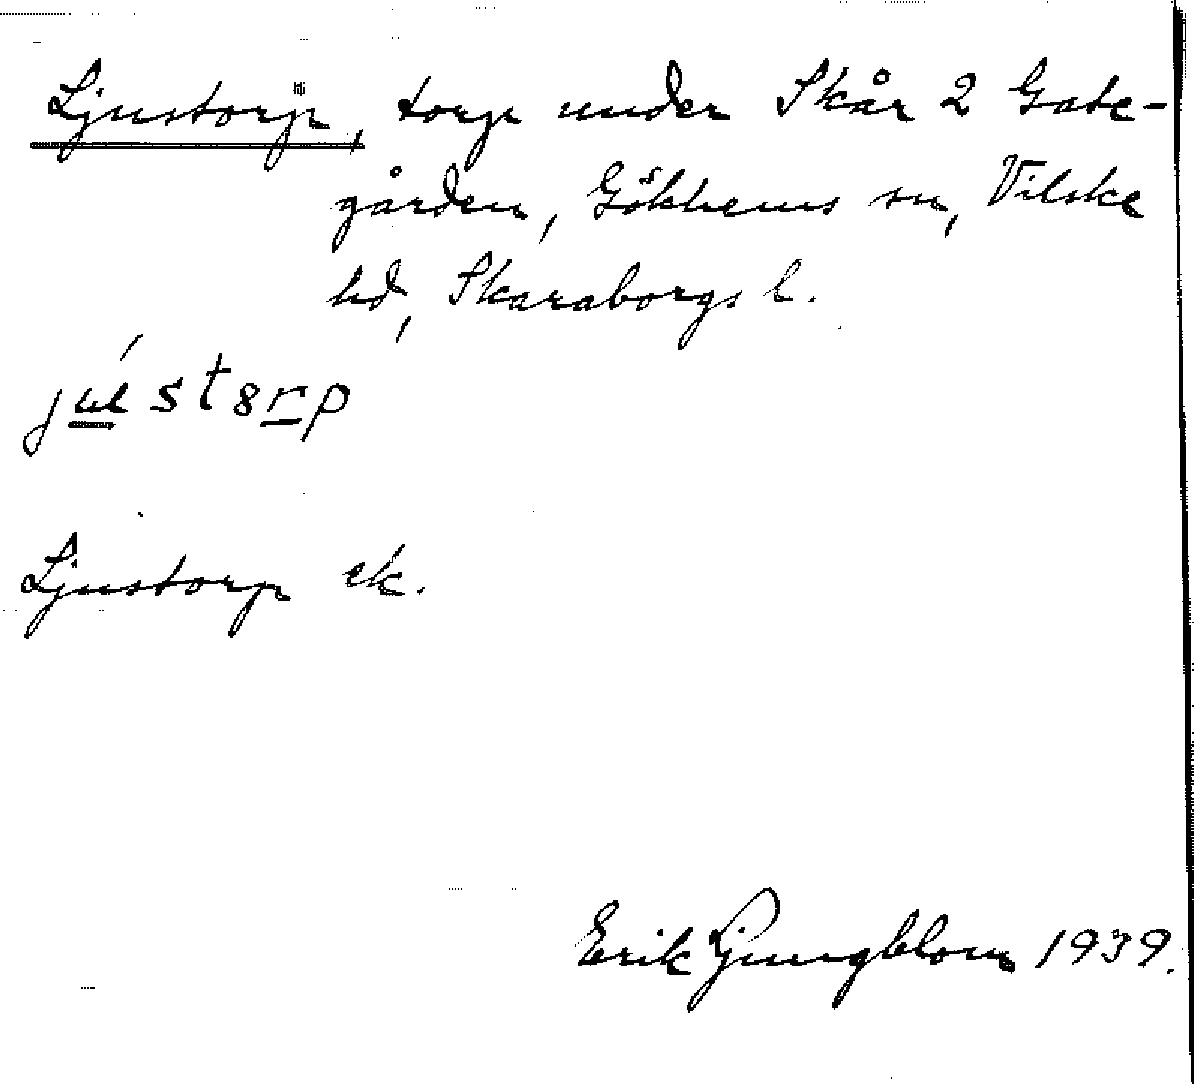 Ljustorp, torp under Skår 2 Gate-
gården, Gökhems sn, Vilske
hd, Skaraborgs l.
Ljustorp ek.
Erik Ljungblom 1939.